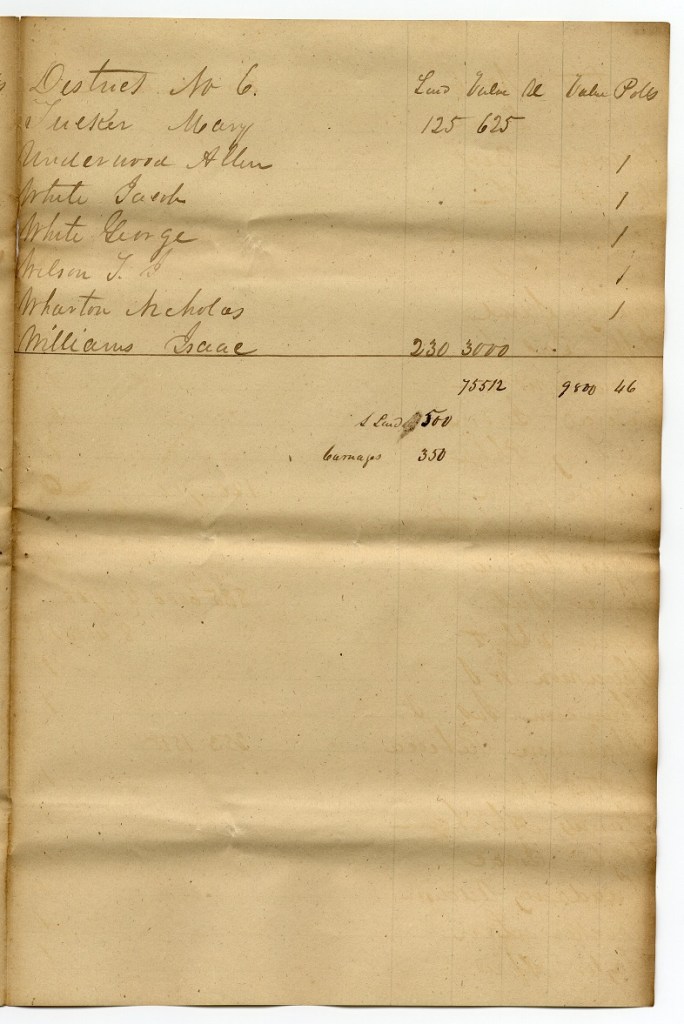 District No 6. Land Value Sl Value Polls
Tucker Mary 125 625
Underwood Allen 1
White Jacob 1
White George 1
Wilson T. 1
Wharton Nicholas 1
Williams Isaac 230 3000
75512 9800 46
S Land 500
Carriages 350